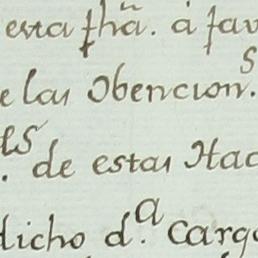 esta fha. á fav
e las Obencion.s
es. de estas Hac
dicho d.a Cargo